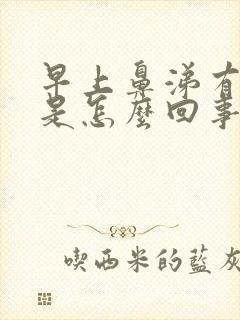 早上鼻涕有
是怎麼回事
喫西米的藍灰